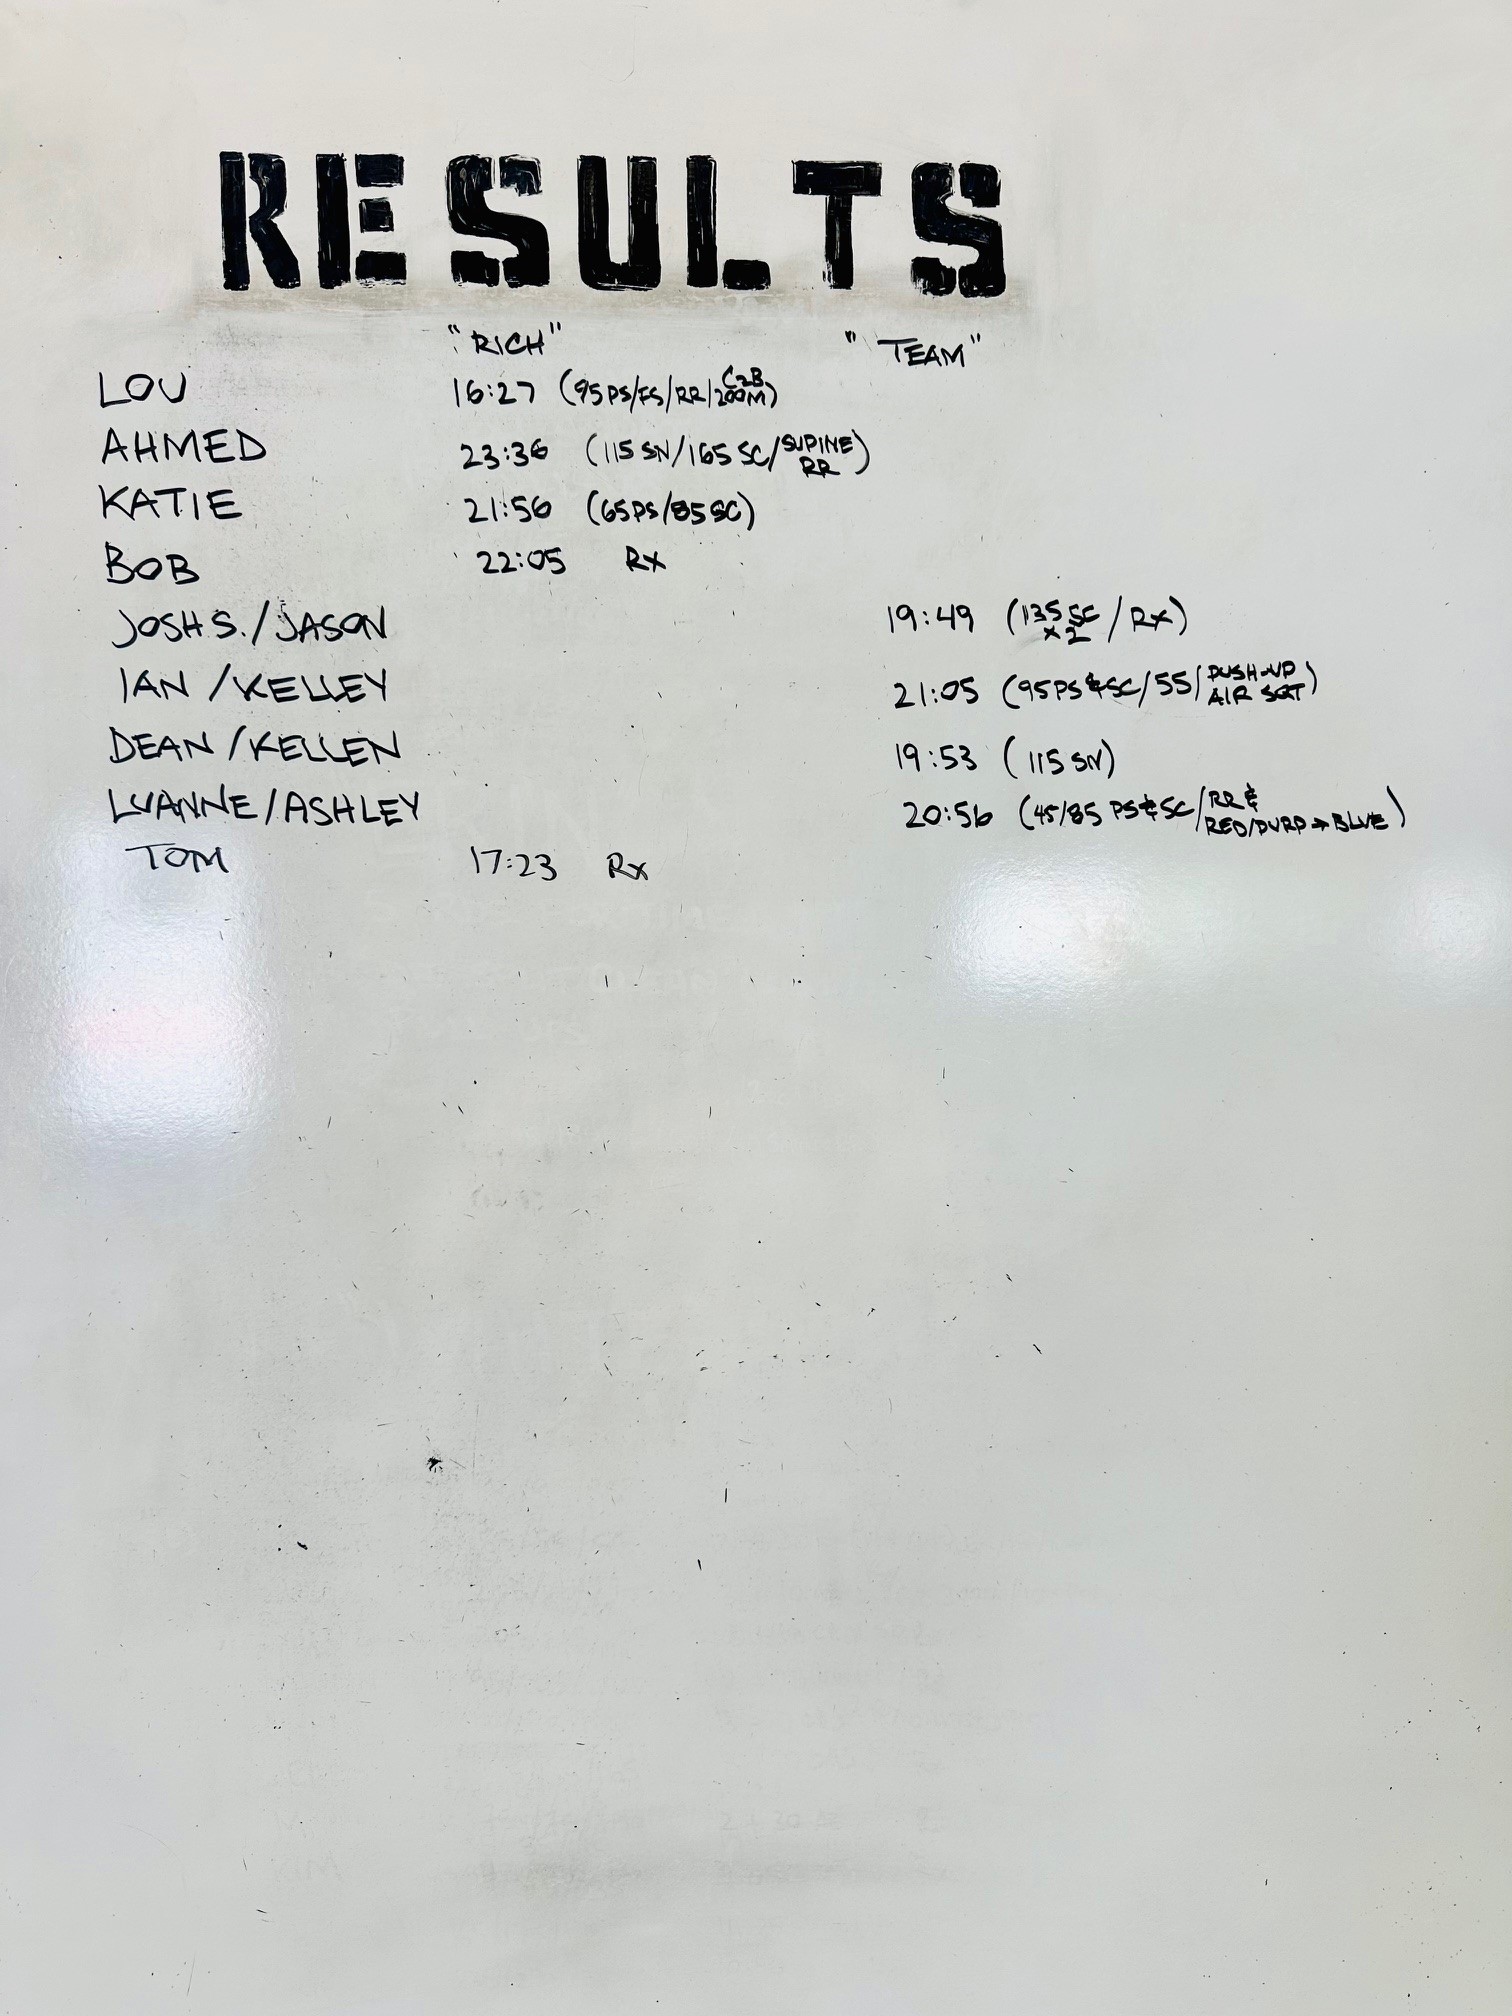 RESULTS
"RICH" "TEAM"
LOU 16:27 (95PS/FS/RR/200M C2B)
AHMED 23:36 (115 SN/165 SC/SUPINE RR)
KATIE 21:56 (65PS/85SC)
BOB 22:05 Rx
JOSH S./JASON 19:49 (135 SC x2 / Rx)
IAN /KELLEY 21:05 (95PS&SC/55/PUSH-UP AIR SQT)
DEAN/KELLEN 19:53 (115 SN)
LUANNE/ASHLEY 20:56 (45/85 PS&SC/RR & RED/PURP→BLUE)
TOM 17:23 Rx